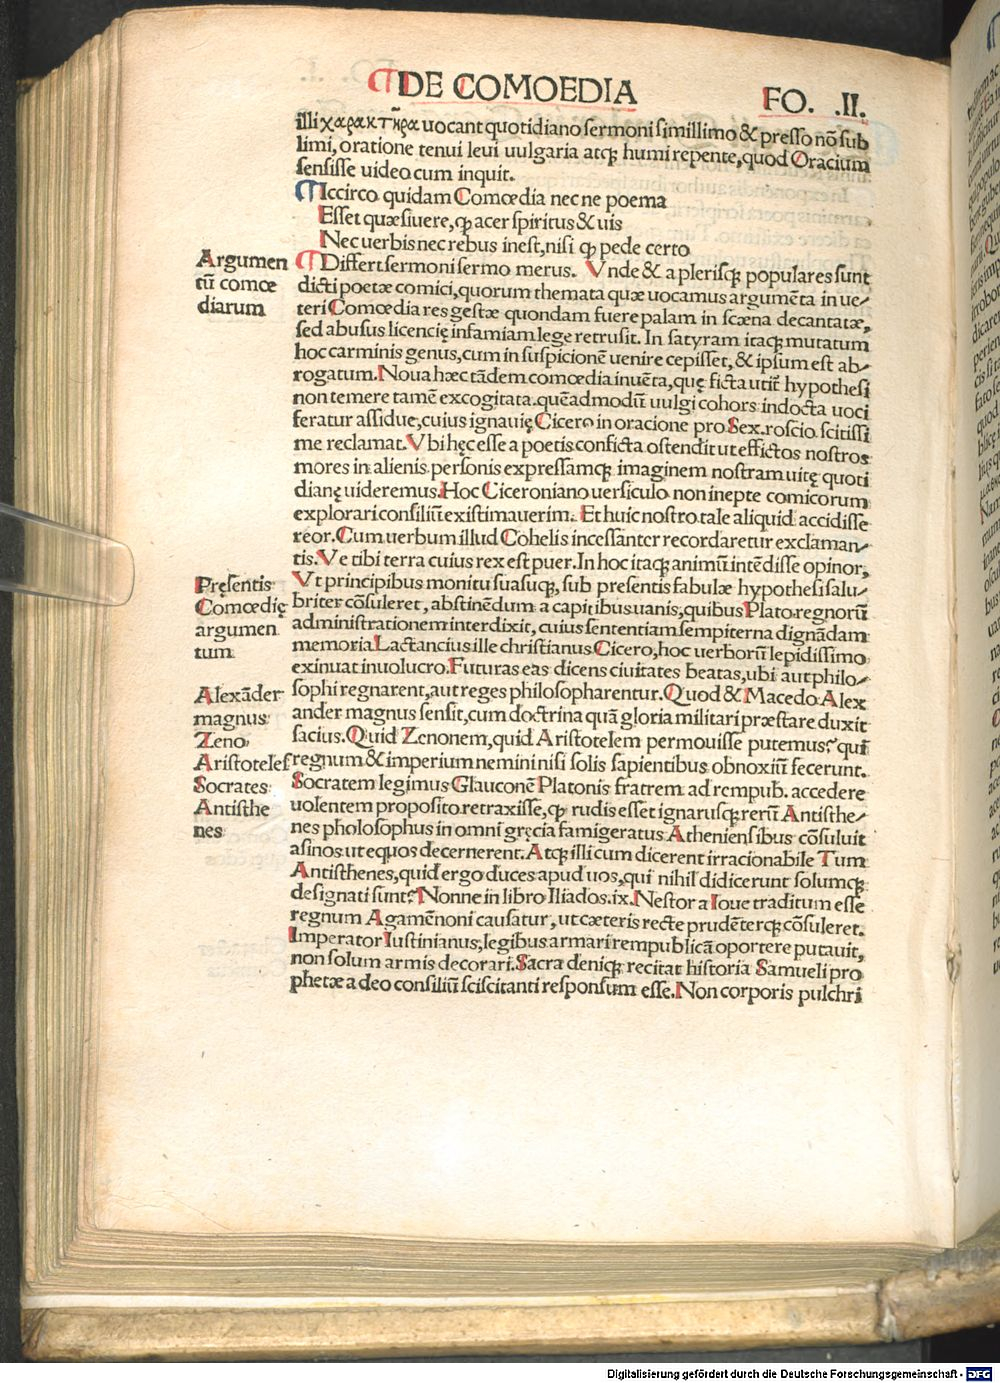 ¶DE COMOEDIA FO. .II.
illi χαρακτῆρα uocant quotidiano sermoni simillimo & presso nõ sub
limi, oratione tenui leui uulgaria atq; humi repente, quod Oracium
sensisse uideo cum inquit.
¶Iccirco quidam Comœdia nec ne poema
Esset quæsiuere, ꝙ acer spiritus & uis
Nec uerbis nec rebus inest, nisi ꝙ pede certo
¶Differt sermoni sermo merus. Vnde & a plerisq; populares sunt
dicti poetæ comici, quorum themata quæ uocamus argumẽta in ue⸗
teri Comœdia res gestæ quondam fuere palam in scæna decantatæ,
sed abusus licencię infamiam lege retrusit. In satyram itaq; mutatum
hoc carminis genus, cum in suspicionẽ uenire cepisset, & ipsum est ab⸗
rogatum. Noua hæc tãdem comœdia inuẽta, quę ficta utit̃ hypothesi
non temere tamẽ excogitata. quẽadmodũ uulgi cohors indocta uoci
feratur assidue, cuius ignauię Cicero in oracione pro Sex. roscio scitissi
me reclamat. Vbi hęc esse a poetis conficta ostendit ut effictos nostros
mores in alienis personis expressamq; imaginem nostram uitę quoti
dianę uideremus. Hoc Ciceroniano uersiculo non inepte comicorum
explorari consiliũ existimauerim. Et huic nostro tale aliquid accidisse
reor. Cum uerbum illud Cohelis incessanter recordaretur exclaman⸗
tis. Ve tibi terra cuius rex est puer. In hoc itaq; animũ intẽdisse opinor,
Vt principibus monitu suasuq;, sub presentis fabulæ hypothesi salu⸗
briter cõsuleret, abstinẽdum a capitibus uanis, quibus Plato regnorũ
administrationem interdixit, cuius sententiam sempiterna dignãdam
memoria Lactancius ille christianus Cicero, hoc uerborũ lepidissimo
exinuat inuolucro. Futuras eas dicens ciuitates beatas, ubi aut philo⸗
sophi regnarent, aut reges philosopharentur. Quod & Macedo Alex
ander magnus sensit, cum doctrina quã gloria militari præstare duxit
sacius. Quid Zenonem, quid Aristotelem permouisse putemus? qui
regnum & imperium nemini nisi solis sapientibus obnoxiũ fecerunt.
Socratem legimus Glauconẽ Platonis fratrem ad rempub. accedere
uolentem proposito retraxisse, ꝙ rudis esset ignarusq; rerũ Antisthe⸗
nes pholosophus in omni gręcia famigeratus Atheniensibus cõsuluit
asinos ut equos decernerent. Atq; illi cum dicerent irracionabile Tum
Antisthenes, quid ergo duces apud uos, qui nihil didicerunt solumq;
designati sunt? Nonne in libro Iliados. ix. Nestor a Ioue traditum esse
regnum Agamẽnoni causatur, ut cæteris recte prudẽterq; cõsuleret.
Imperator Iustinianus, legibus armari rempublicã oportere putauit,
non solum armis decorari. Sacra deniq; recitat historia Samueli pro
phetæ a deo consiliũ sciscitanti responsum esse. Non corporis pulchri
Argumen
tũ comœ
diarum
Pręsentis
Comœdię
argumen
tum
Alexãder
magnus
Zeno
Aristoteles
Socrates
Antisthe
nes
Digitalisierung gefördert durch die Deutsche Forschungsgemeinschaft - DFG